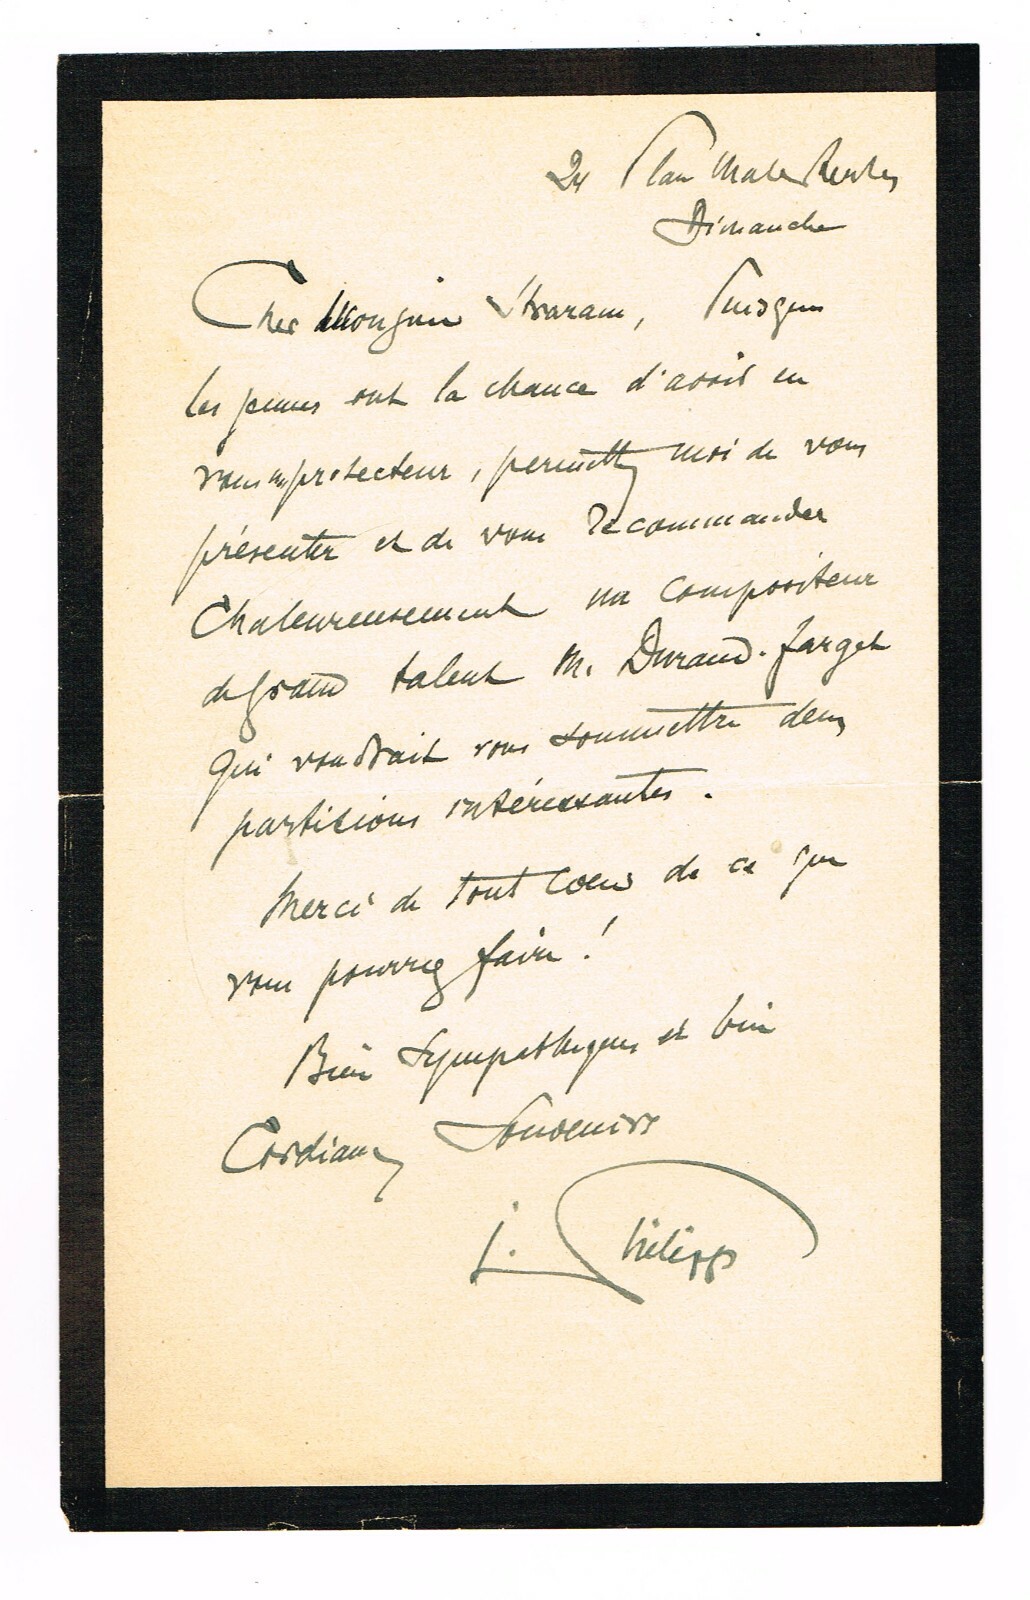 24 Place Malesherbes
Dimanche
Cher Monsieur Straram, Puisque
les jeunes ont la chance d'avoir en
vous un protecteur, permettez moi de vous
présenter et de vous recommander
Chaleureusement un compositeur
de grand talent M. Durand-Farget
qui voudrait vous soumettre deux
partitions intéressantes.
Merci de tout cœur de ce que
vous pourrez faire!
Bien sympathiques et bien
Cordiaux Souvenirs
J. Philipp